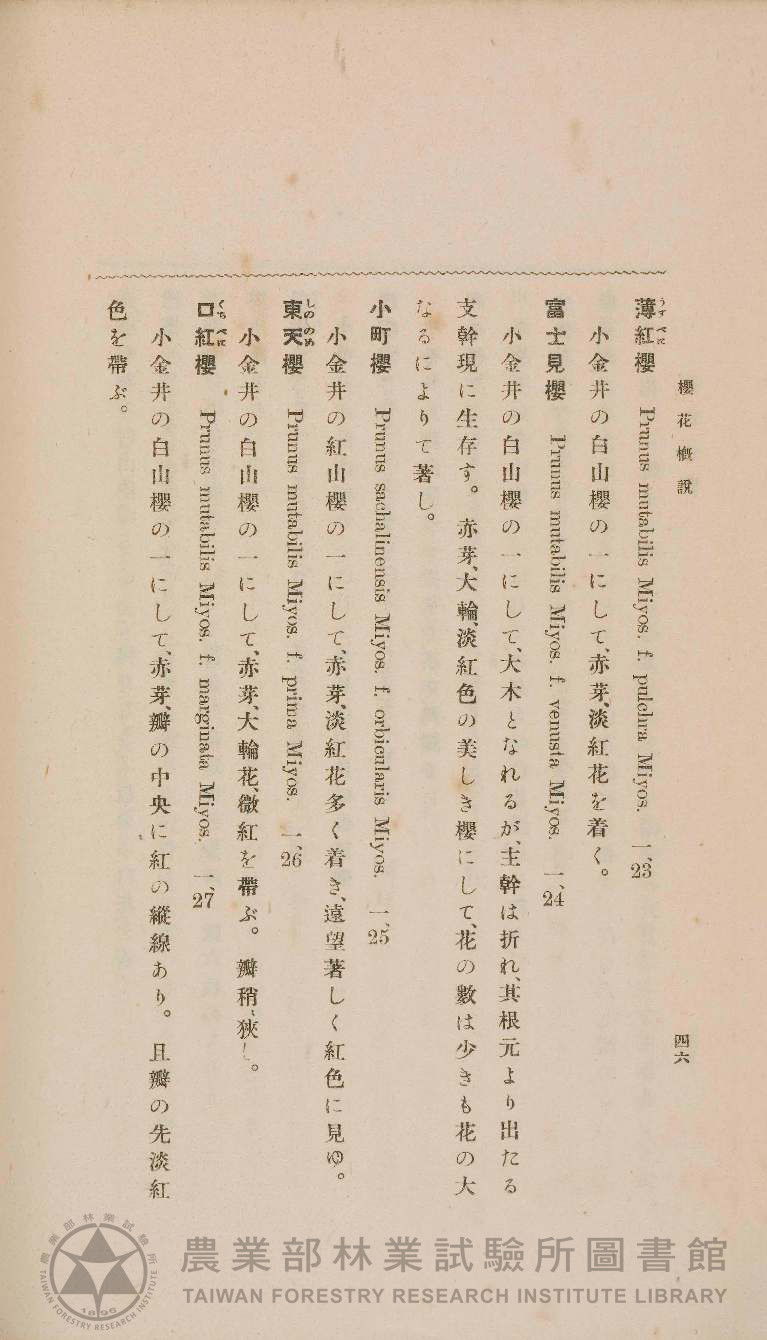 櫻花槪說
四六
薄紅櫻 Prunus mutabilis Miyos. f. pulchra Miyos. 一、23
うすべに
小金井の白山櫻の一にして、赤芽、淡紅花を着く。
富士見櫻 Prunus mutabilis Miyos. f. venusta Miyos. 一、24
小金井の白山櫻の一にして、大木となれるが、主幹は折れ、其根元より出たる
支幹現に生存す。赤芽、大輪、淡紅色の美しき櫻にして、花の數は少きも花の大
なるによりて著し。
小町櫻 Prunus sachalinensis Miyos. f. orbicularis Miyos. 一、25
小金井の紅山櫻の一にして、赤芽、淡紅花多く着き、遠望著しく紅色に見ゆ。
東天櫻 Prunus mutabilis Miyos. f. prima Miyos. 一、26
しののめ
小金井の白山櫻の一にして、赤芽、大輪花、微紅を帶ぶ。瓣稍〻狹し。
口紅櫻 Prunus mutabilis Miyos. f. marginata Miyos. 一、27
くちべに
小金井の白山櫻の一にして、赤芽、瓣の中央に紅の縱線あり。且瓣の先淡紅
色を帶ぶ。
農業部林業試驗所圖書館
TAIWAN FORESTRY RESEARCH INSTITUTE LIBRARY
農業部林業試驗所
TAIWAN FORESTRY RESEARCH INSTITUTE
1896